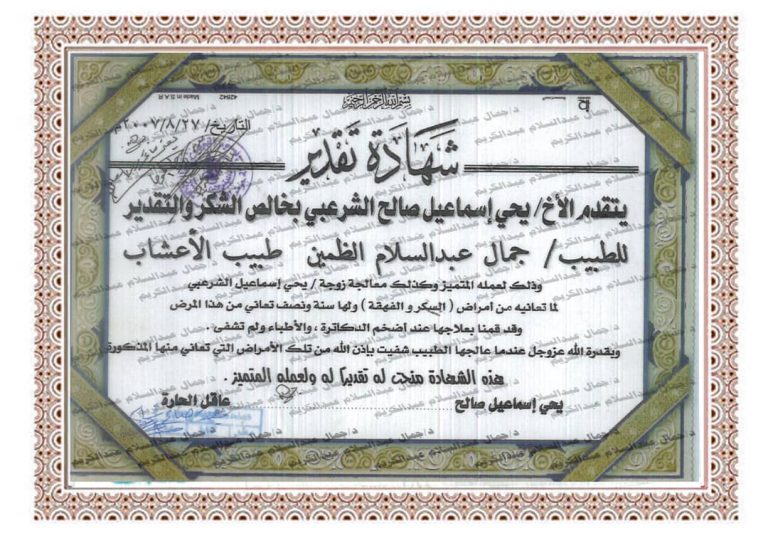 بسم الله الرحمن الرحيم
42542 Made in S.A.R
التاريخ/ ٢٠٠٧/٨/٢٧م
شهادة تقدير
يتقدم الأخ/ يحي إسماعيل صالح الشرعبي بخالص الشكر والتقدير
للطبيب/ جمال عبدالسلام الظمين طبيب الأعشاب
وذلك لعمله المتميز وكذلك معالجة زوجة / يحي إسماعيل الشرعبي
لما تعانيه من أمراض ( السكر و الفهقة ) ولها سنة ونصف تعاني من هذا المرض
وقد قمنا بعلاجها عند اضخم الدكاترة ، والأطباء ولم تشفى .
وبقدرة الله عزوجل عندما عالجها الطبيب شفيت بإذن الله من تلك الأمراض التي تعاني منها المذكورة
هذه الشهادة منحت له تقديراً له ولعمله المتميز .
يحي إسماعيل صالح عاقل الحارة
د/جمال عبدالسلام عبدالكريم